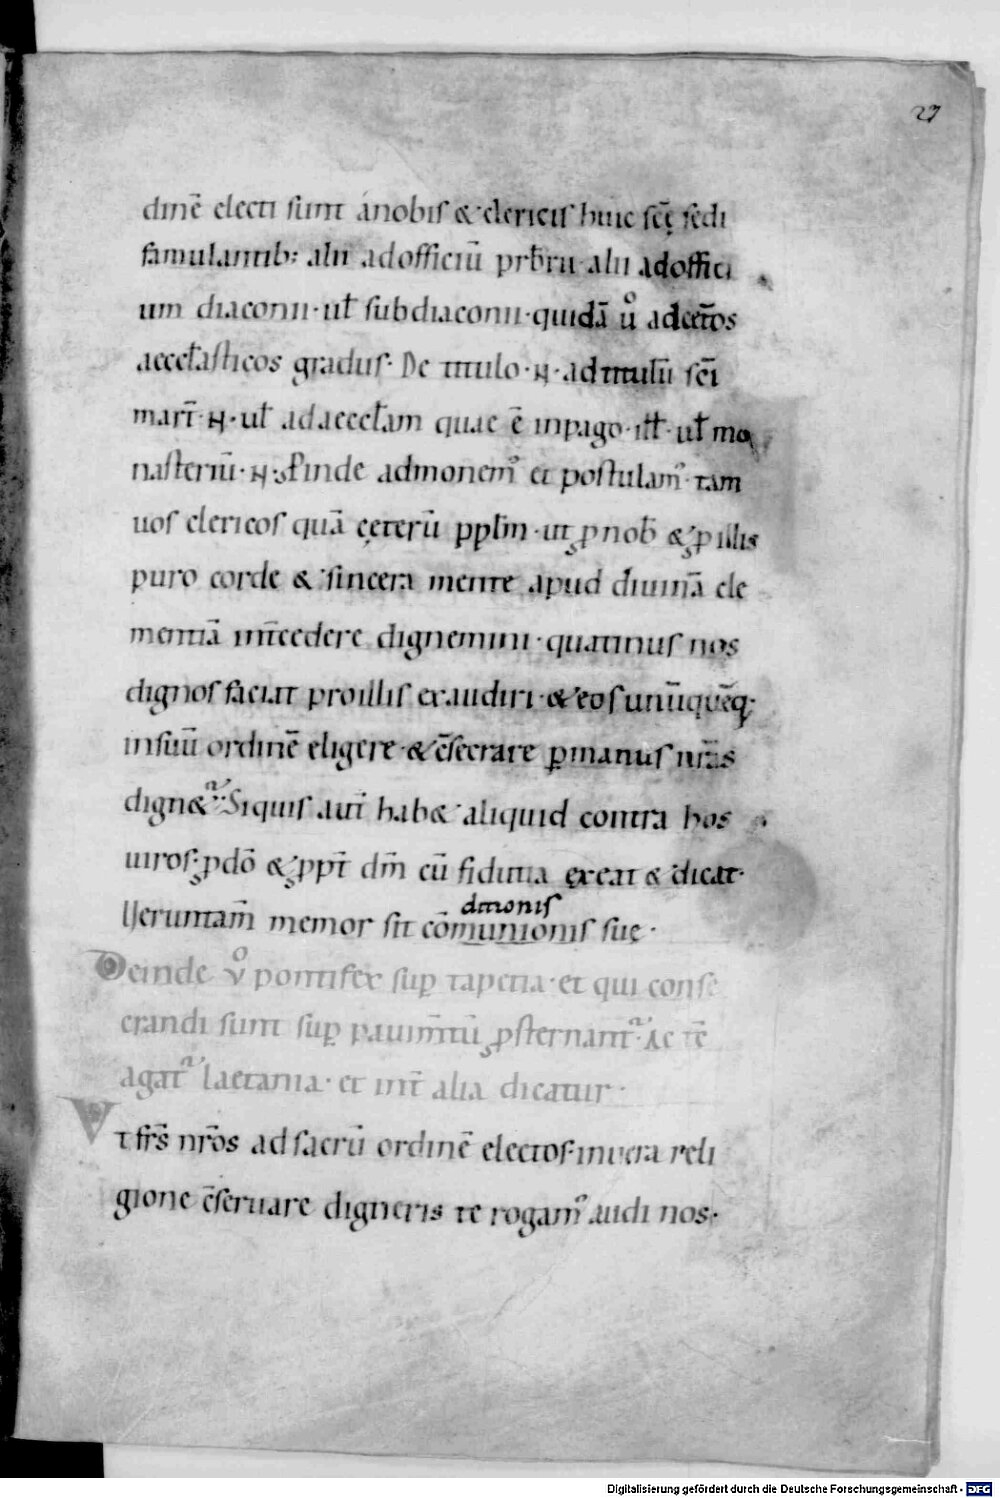 27
dinē electi sunt anobis & clericis huic scę sedi
famulantib; alii adofficiū prb̄rii alii adoffici
um diaconii · ut̄ subdiaconii · quidā ů adcet̄os
aeccl̄asticos gradus · De titulo · N · ad titulū sc̄i
mart̄ · N · ut̄ adaeccl̄am quae ē inpago · ill̄ · ut̄ mo
nasteriū · N · Proinde admonem᷒ et postulam᷒ · tam
uos clericos quā cęterū ppl̄m · ut ꝓ nob̄ & ꝓ illis
puro corde & sincera mente apud diuinā cle
mentiā int̄cedere dignemini · quatinus nos
dignos faciat proillis exaudiri · & eos unūquēq;
insuū ordinē eligere · & c̄secrare ꝑmanus nr̄as
dign&ur. Siquis aut̄ hab& aliquid contra hos
uiros · ꝓ dō & ꝓpt̄ dm̄ cū fiducia exeat & dicat ·
Ueruntam̄ memor sit cōmunionis suę ·
ditionis
Deinde v̊ pontifex suꝑ tapetia · et qui conse
crandi sunt suꝑ pauim̄tū ꝓsternant᷑ · Ac tē
agat᷑ laetania · et int̄ alia dicatur ·
Vt frs̄ nr̄os ad sacrū ordinē electos · inuera reli
gione c̄seruare digneris te rogam᷒ audi nos ·
Digitalisierung gefördert durch die Deutsche Forschungsgemeinschaft - DFG